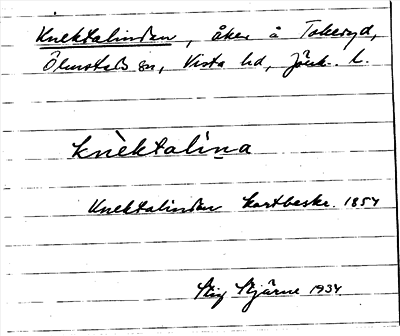 Knektalinden, åker å Tokeryd,
Ölmstads sn, Vista hd, Jönk. l.
knèktalìna
Knektalinden kartbeskr. 1854
Stig Stjärne 1934